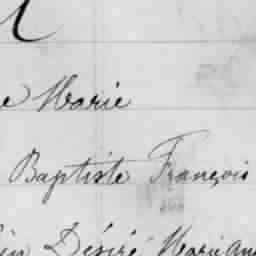 e Marie
Baptiste François
Désiré Marie